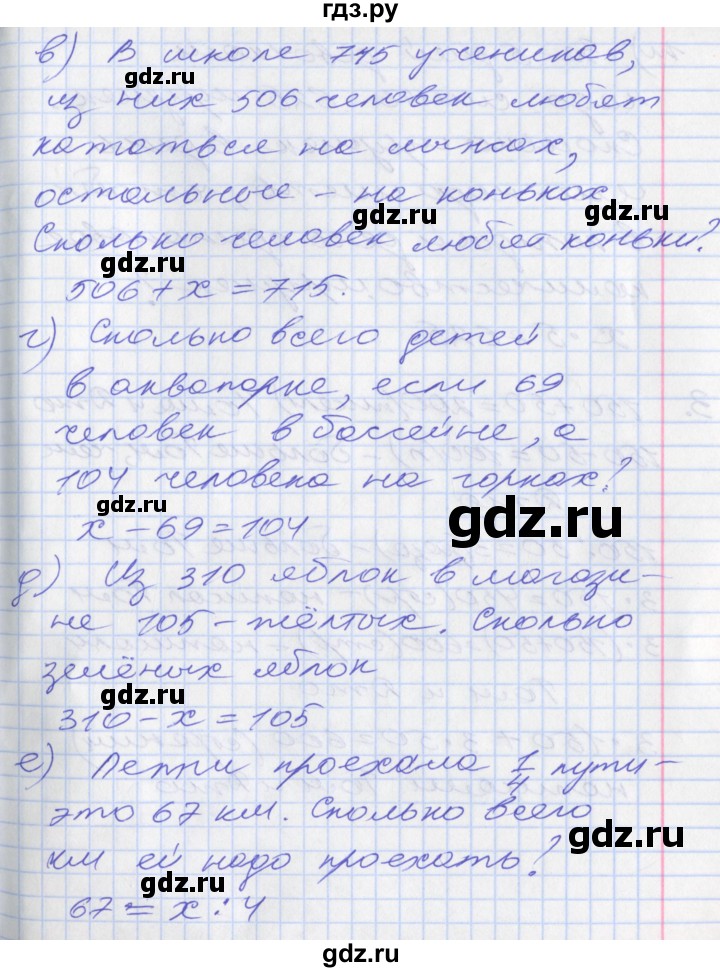 гдз.ру
в) В школе 715 учеников,
gdz.ru
из них 506 человек любят
кататься на лыжах,
gdz.ru
остальные – на коньках
gdz.ru
Сколько человек любят коньки?
gdz.ru
506 + х = 715.
г) Сколько всего детей
gdz.ru
в аквапарке, если 69
человек в бассейне, а
104 человека на горках?
gdz.ru
gdz.ru
х – 69 = 104
д) Из 310 яблок в магази-
не 105 – жёлтых. Сколько
gdz.ru
зелёных яблок
gdz.ru
310 – х = 105
е) Пеппи проехала 1/4 пути –
gdz.ru
это 67 км. Сколько всего
gdz.ru
км ей надо проехать?
gdz.ru
67 = х : 4
gdz.ru